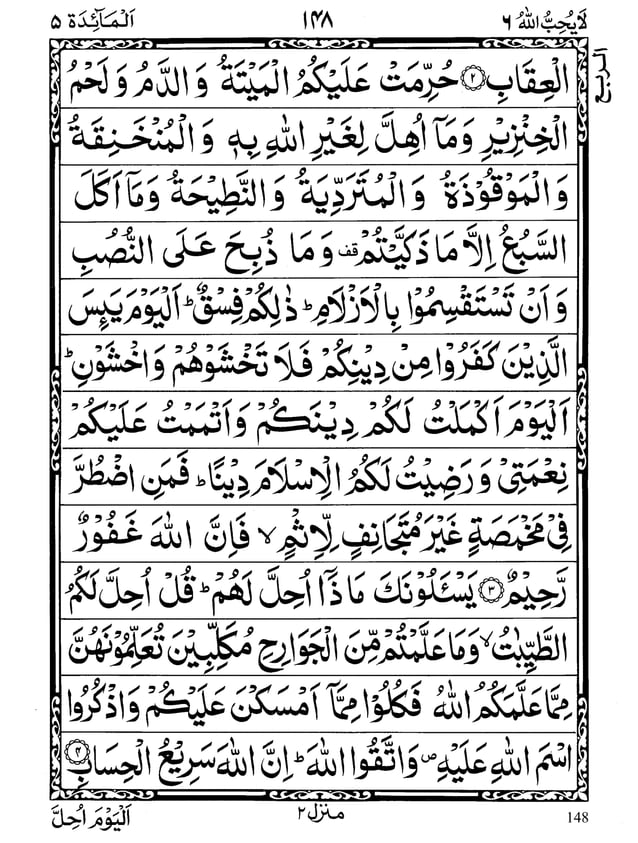 لَا يُحِبُّ اللهُ ٦
١٤٨
اَلْمَآئِدَة ٥
الربع
الْعِقَابِ ۟﴿۲﴾ حُرِّمَتْ عَلَيْكُمُ الْمَيْتَةُ وَالدَّمُ وَلَحْمُ
الْخِنْزِيْرِ وَمَاۤ اُهِلَّ لِغَيْرِ اللهِ بِهٖ وَالْمُنْخَنِقَةُ
وَالْمَوْقُوْذَةُ وَالْمُتَرَدِّيَةُ وَالنَّطِيْحَةُ وَمَاۤ اَكَلَ
السَّبُعُ اِلَّا مَا ذَكَّيْتُمْ قف وَمَا ذُبِحَ عَلَى النُّصُبِ
وَاَنْ تَسْتَقْسِمُوْا بِالْاَزْلَامِ ؕ ذٰلِكُمْ فِسْقٌ ؕ اَلْيَوْمَ يَىِٕسَ
الَّذِيْنَ كَفَرُوْا مِنْ دِيْنِكُمْ فَلَا تَخْشَوْهُمْ وَاخْشَوْنِ ؕ
اَلْيَوْمَ اَكْمَلْتُ لَكُمْ دِيْنَكُمْ وَاَتْمَمْتُ عَلَيْكُمْ
نِعْمَتِيْ وَرَضِيْتُ لَكُمُ الْاِسْلَامَ دِيْنًا ؕ فَمَنِ اضْطُرَّ
فِيْ مَخْمَصَةٍ غَيْرَ مُتَجَانِفٍ لِّاِثْمٍ ۙ فَاِنَّ اللهَ غَفُوْرٌ
رَّحِيْمٌ ﴿۳﴾ يَسْـَٔلُوْنَكَ مَاذَاۤ اُحِلَّ لَهُمْ ؕ قُلْ اُحِلَّ لَكُمُ
الطَّيِّبٰتُ ۙ وَمَا عَلَّمْتُمْ مِّنَ الْجَوَارِحِ مُكَلِّبِيْنَ تُعَلِّمُوْنَهُنَّ
مِمَّا عَلَّمَكُمُ اللهُ فَكُلُوْا مِمَّاۤ اَمْسَكْنَ عَلَيْكُمْ وَاذْكُرُوا
اسْمَ اللهِ عَلَيْهِ ص وَاتَّقُوا اللهَ ؕ اِنَّ اللهَ سَرِيْعُ الْحِسَابِ ﴿۴﴾
148
منزل ۲
اَلْيَوْمَ اُحِلَّ